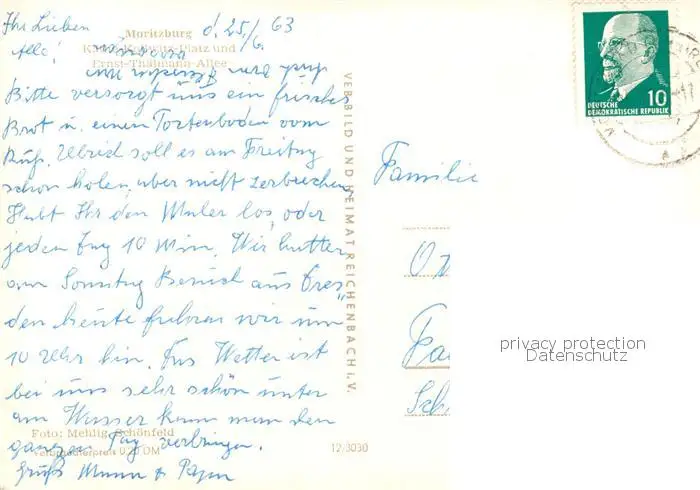 Ihr Lieben d. 25./6. 63
Alle!
Moritzburg
Käthe-Kollwitz-Platz und
Ernst-Thälmann-Allee
Bitte versorgt uns ein frisches
Brot u. einen Tortenboden vom
soll es am Freitag
schon holen, aber nicht zerbrechen
Habt Ihr den Maler los, oder
jeden Tag 10 Min. Wir hatten
am Sonntag Besuch aus Dres
den heute fuhren wir um
10 Uhr hin. Das Wetter ist
bei uns sehr schön unter
am Wasser kann man den
ganzen Tag verbringen.
Gruß
Foto: Mehlig, Schönfeld
Verbraucherpreis 0,20 DM
12/3030
VEB BILD UND HEIMAT REICHENBACH i. V.
DEUTSCHE 10
DEMOKRATISCHE REPUBLIK
Familie
privacy protection
Datenschutz